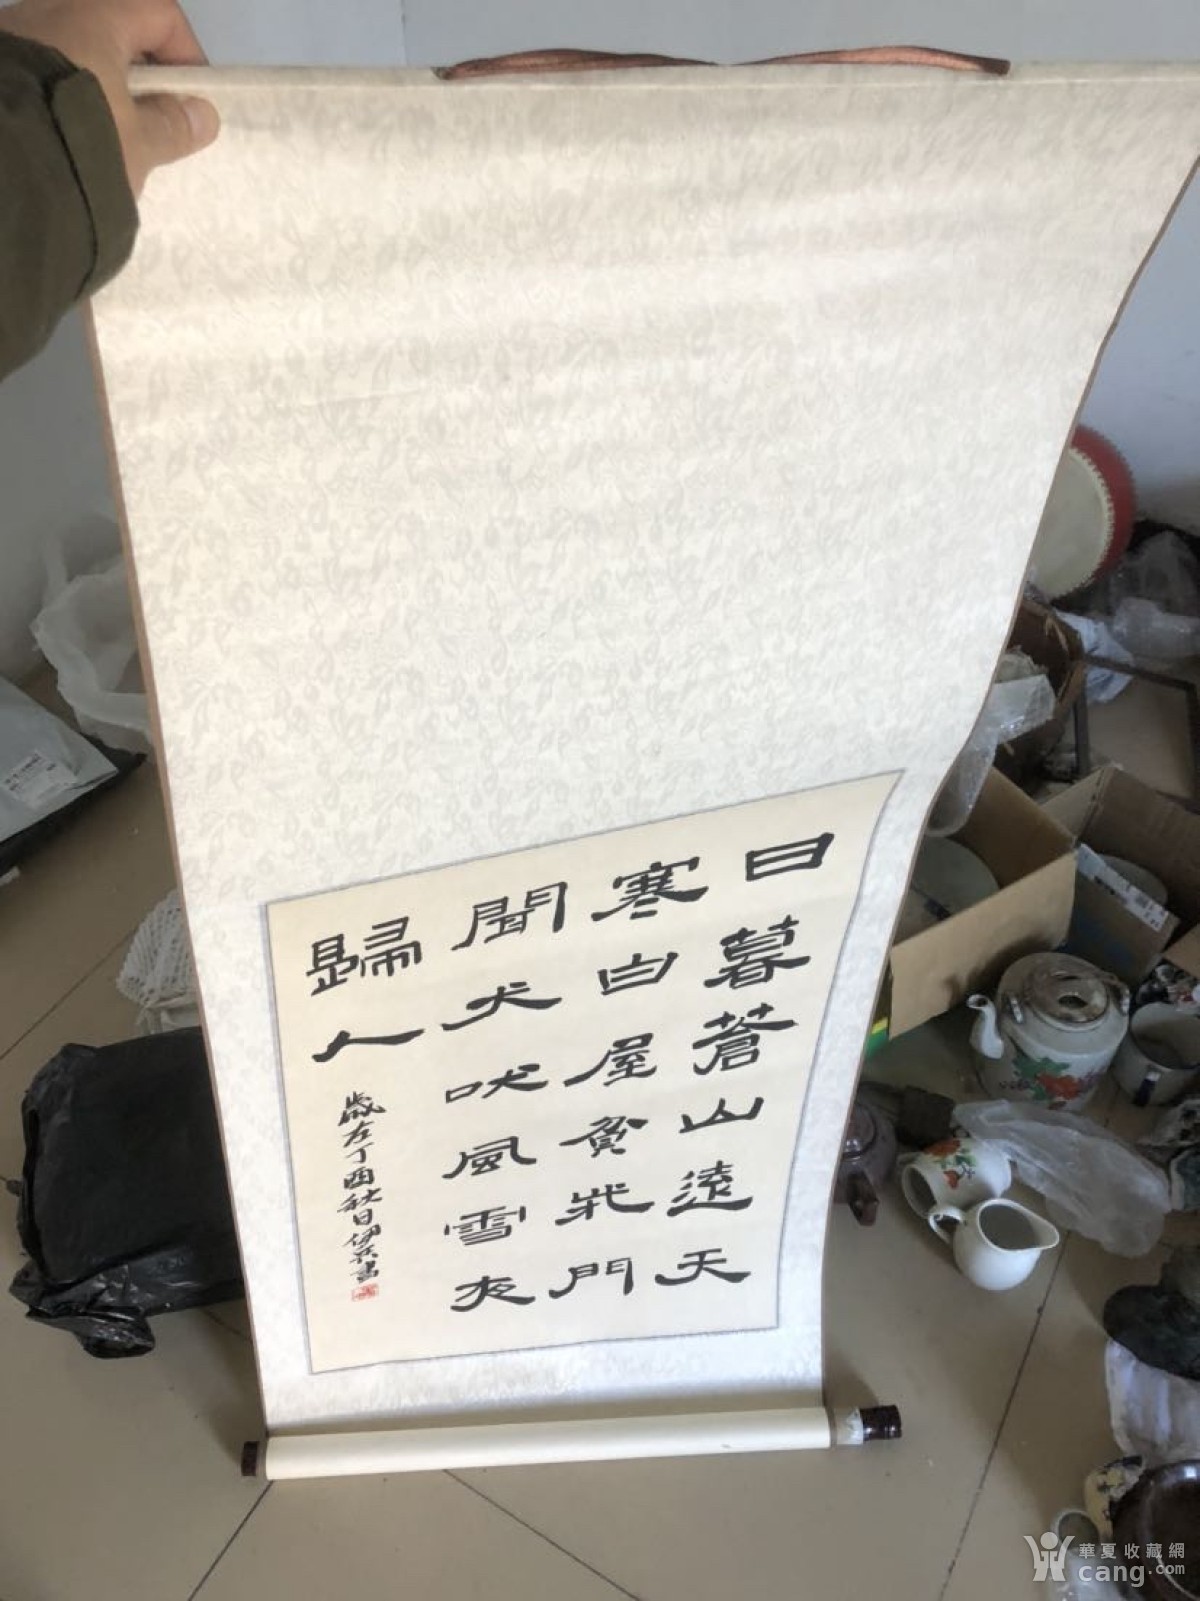 日暮蒼山遠天
寒白屋貧柴門
聞犬吠風雪夜
歸人
歲在丁酉秋日伊兵書
華夏收藏網
cang.com